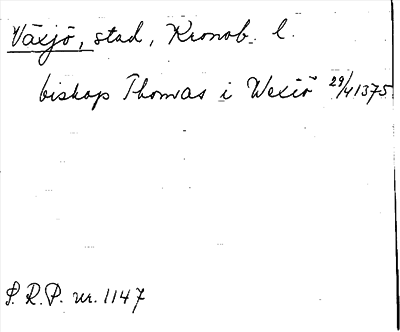 Växjö, stad, Kronob. l.
biskop Thomas i Wexiö 29/4 1375
S.R.P. nr. 1147